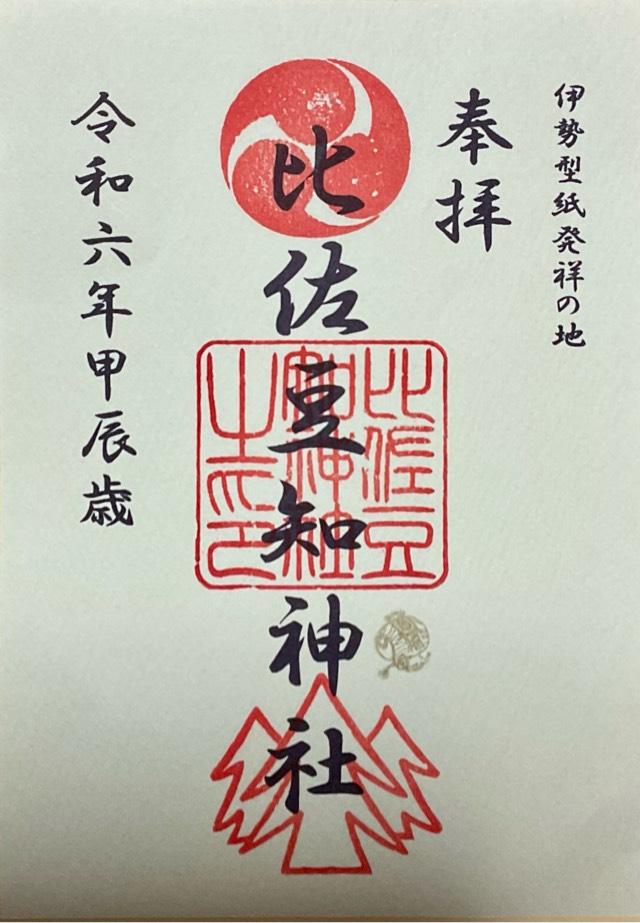 伊勢型紙発祥の地
奉拝
比佐豆知神社
比佐豆
知神社
之印
令和六年甲辰歳